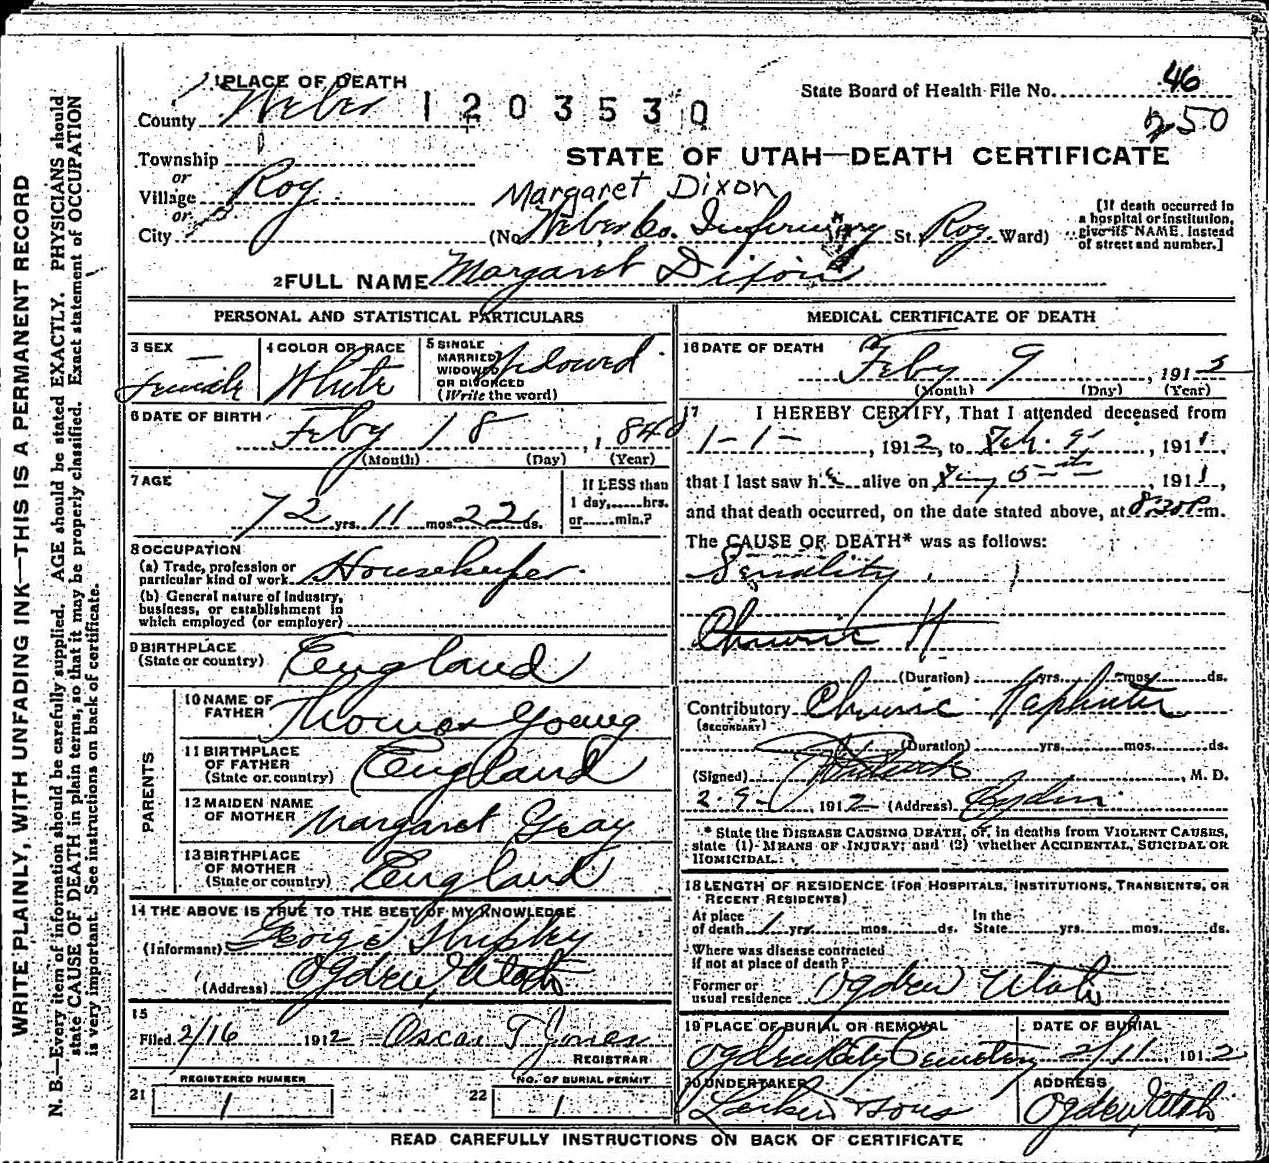 WRITE PLAINLY, WITH UNFADING INK—THIS IS A PERMANENT RECORD
N. B.—Every item of information should be carefully supplied. AGE should be stated EXACTLY. PHYSICIANS should
state CAUSE OF DEATH in plain terms, so that it may be properly classified. Exact statement of OCCUPATION
is very important. See instructions on back of certificate.
1 PLACE OF DEATH
County Weber
1203530
State Board of Health File No. 46
250
STATE OF UTAH—DEATH CERTIFICATE
Township
or
Village Roy
or
City
Margaret Dixon
(No. Weber Co. Infirmary St. Roy. Ward)
[If death occurred in
a hospital or institution,
give its NAME. instead
of street and number.]
2 FULL NAME Margaret Dixon
PERSONAL AND STATISTICAL PARTICULARS
3 SEX
Female
4 COLOR OR RACE
White
5 SINGLE
MARRIED
WIDOWED
OR DIVORCED
(Write the word)
Widowed
6 DATE OF BIRTH
Feby 18, 1840
(Month) (Day) (Year)
7 AGE
72 yrs. 11 mos. 22 ds.
If LESS than
1 day, hrs.
or min.?
8 OCCUPATION
(a) Trade, profession or
particular kind of work Housekeeper
(b) General nature of industry,
business, or establishment in
which employed (or employer)
9 BIRTHPLACE
(State or country) England
PARENTS
10 NAME OF
FATHER Thomas Young
11 BIRTHPLACE
OF FATHER
(State or country) England
12 MAIDEN NAME
OF MOTHER Margaret Gray
13 BIRTHPLACE
OF MOTHER
(State or country) England
14 THE ABOVE IS TRUE TO THE BEST OF MY KNOWLEDGE
(Informant) George Shipley
(Address) Ogden, Utah
15
Filed 2/16 1912 Oscar T Jones
REGISTRAR
21 REGISTERED NUMBER
1
22 NO. OF BURIAL PERMIT
1
MEDICAL CERTIFICATE OF DEATH
16 DATE OF DEATH
Feby 9, 1912
(Month) (Day) (Year)
17 I HEREBY CERTIFY, That I attended deceased from
1-1-, 1912, to Feb. 9, 1911,
that I last saw her alive on 5th, 1911,
and that death occurred, on the date stated above, at 8:20 P m.
The CAUSE OF DEATH* was as follows:
Senility
Chronic H
(Duration) yrs. mos. ds.
Contributory Chronic Nephritis
(SECONDARY)
(Duration) yrs. mos. ds.
(Signed) , M. D.
2-9-, 1912 (Address) Ogden
* State the DISEASE CAUSING DEATH, or, in deaths from VIOLENT CAUSES,
state (1) MEANS OF INJURY; and (2) whether ACCIDENTAL, SUICIDAL OR
HOMICIDAL.
18 LENGTH OF RESIDENCE (FOR HOSPITALS, INSTITUTIONS, TRANSIENTS, OR
RECENT RESIDENTS)
At place
of death 1 yrs. mos. ds.
In the
State yrs. mos. ds.
Where was disease contracted
if not at place of death?
Former or
usual residence Ogden Utah
19 PLACE OF BURIAL OR REMOVAL
Ogden City Cemetery
DATE OF BURIAL
2/11, 1912
20 UNDERTAKER
Larkin & Sons
ADDRESS
Ogden, Utah
READ CAREFULLY INSTRUCTIONS ON BACK OF CERTIFICATE